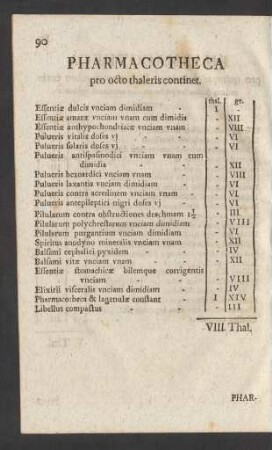 90
PHARMACOTHECA
pro octo thaleris continet.
thal. gr.
Essentiæ dulcis vnciam dimidiam - I -
Essentiæ amaræ vnciam vnam cum dimidia - XII
Essentiæ antihypochondriacæ vnciam vnam - VIII
Pulueris vitalis doses vj - - VI
Pulueris solaris doses vj - - VI
Pulueris antispasmodici vnciam vnam cum
dimidia - - XII
Pulueris bezoardici vnciam vnam - VIII
Pulueris laxantis vnciam dimidiam - VI
Pulueris contra acredinem vnciam vnam - VI
Pulueris antepileptici nigri doses vj - VI
Pilularum contra obstructiones drachmam 1½ - III
Pilularum polychrestarum vnciam dimidiam - VIII
Pilularum purgantium vnciam dimidiam - VI
Spiritus anodyno mineralis vnciam vnam - XII
Balsami cephalici pyxidem - - IV
Balsami vitæ vnciam vnam - - XII
Essentiæ stomachicæ bilemque corrigentis
vnciam - - VIII
Elixirii visceralis vnciam dimidiam - IV
Pharmacotheca & lagenulæ constant - I XIV
Libellus compactus - - III
VIII Thal.
PHAR-